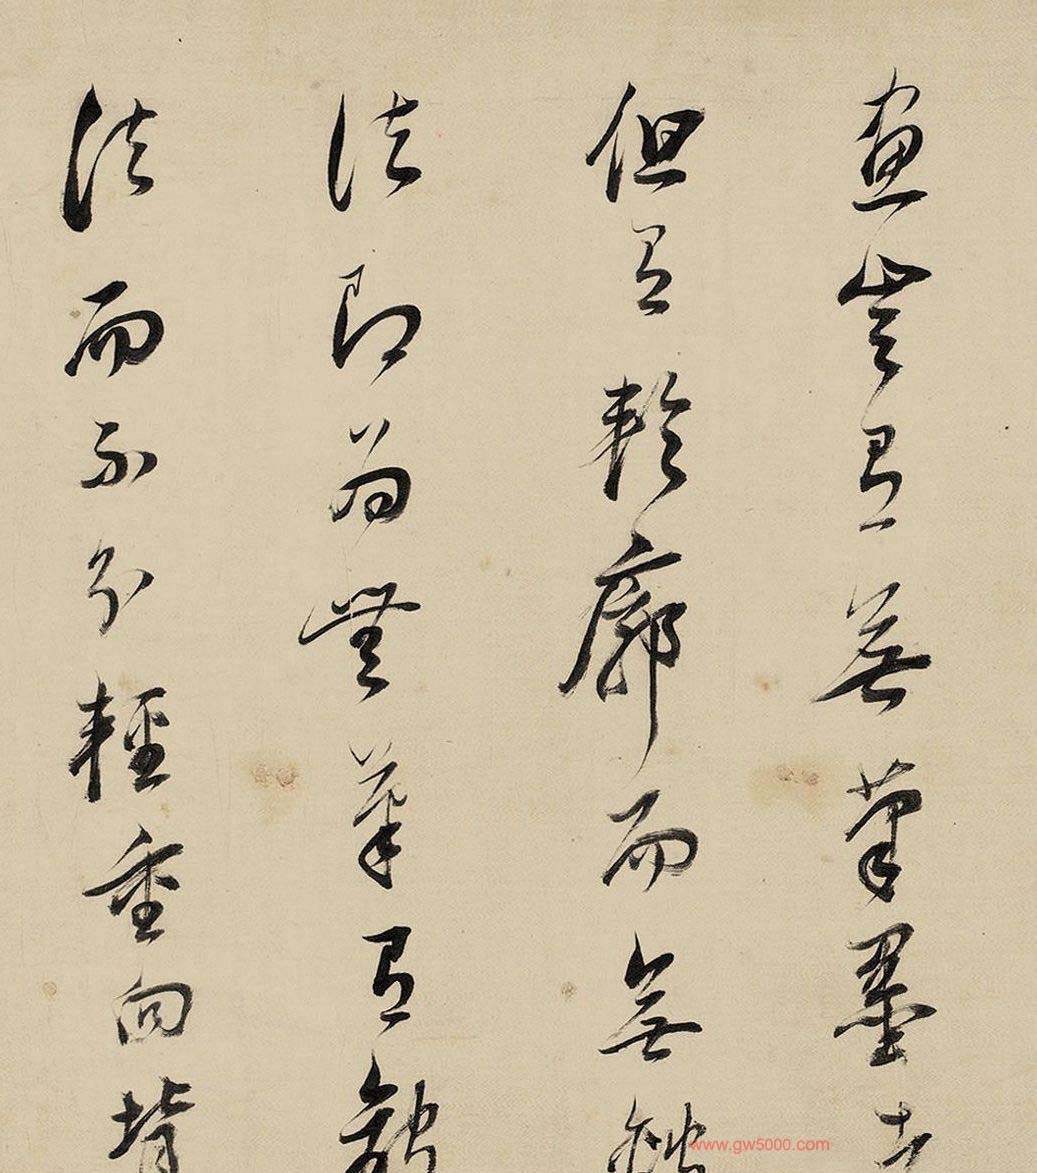 畫豈有無筆墨者
但有輪廓而無皴
法即為無筆有皴
法而不分輕重向背
www.gw5000.com